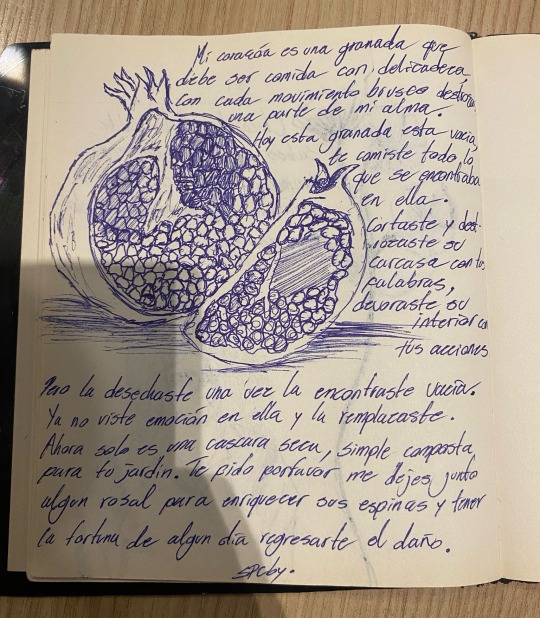 Mi corazón es una granada que
debe ser comida con delicadeza.
Con cada movimiento brusco destrozas
una parte de mi alma.
Hoy esta granada esta vacia,
te comiste todo lo
que se encontraba
en ella.
Cortaste y dest-
rozaste su
carcasa con tus
palabras,
devoraste su
interior con
tus acciones
Pero la desechaste una vez la encontraste vacia.
Ya no viste emoción en ella y la remplazaste.
Ahora solo es una cascara seca, simple composta
para tu jardin. Te pido porfavor me dejes junto
algun rosal para enriquecer sus espinas y tener
la fortuna de algun dia regresarte el daño.